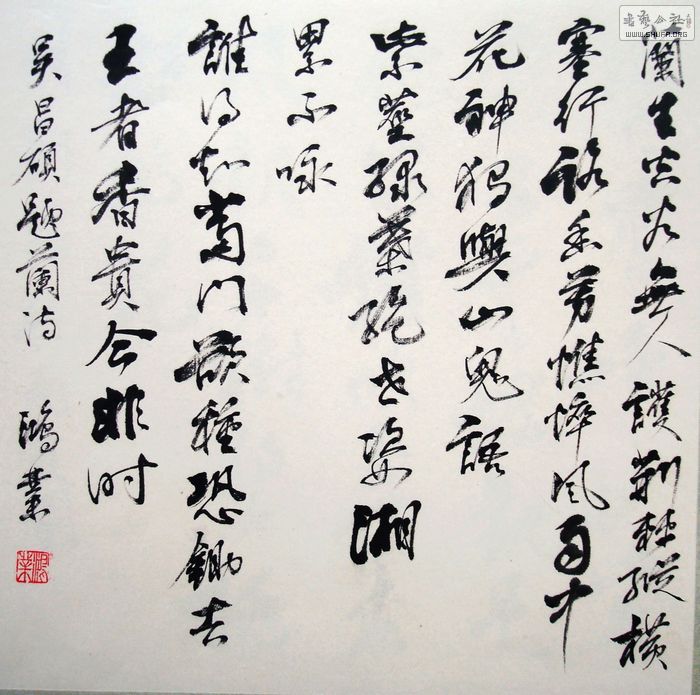 蘭生空谷無人護荆棘縱橫
塞行路幽芳憔悴風雨中
花神獨與山鬼語
紫莖綠葉絕世姿湘
累不咏
誰得知當門欲種恐鋤去
王者香貴今非时
吴昌碩題蘭詩 鴻業
書藝公社
WWW.SHUFA.ORG